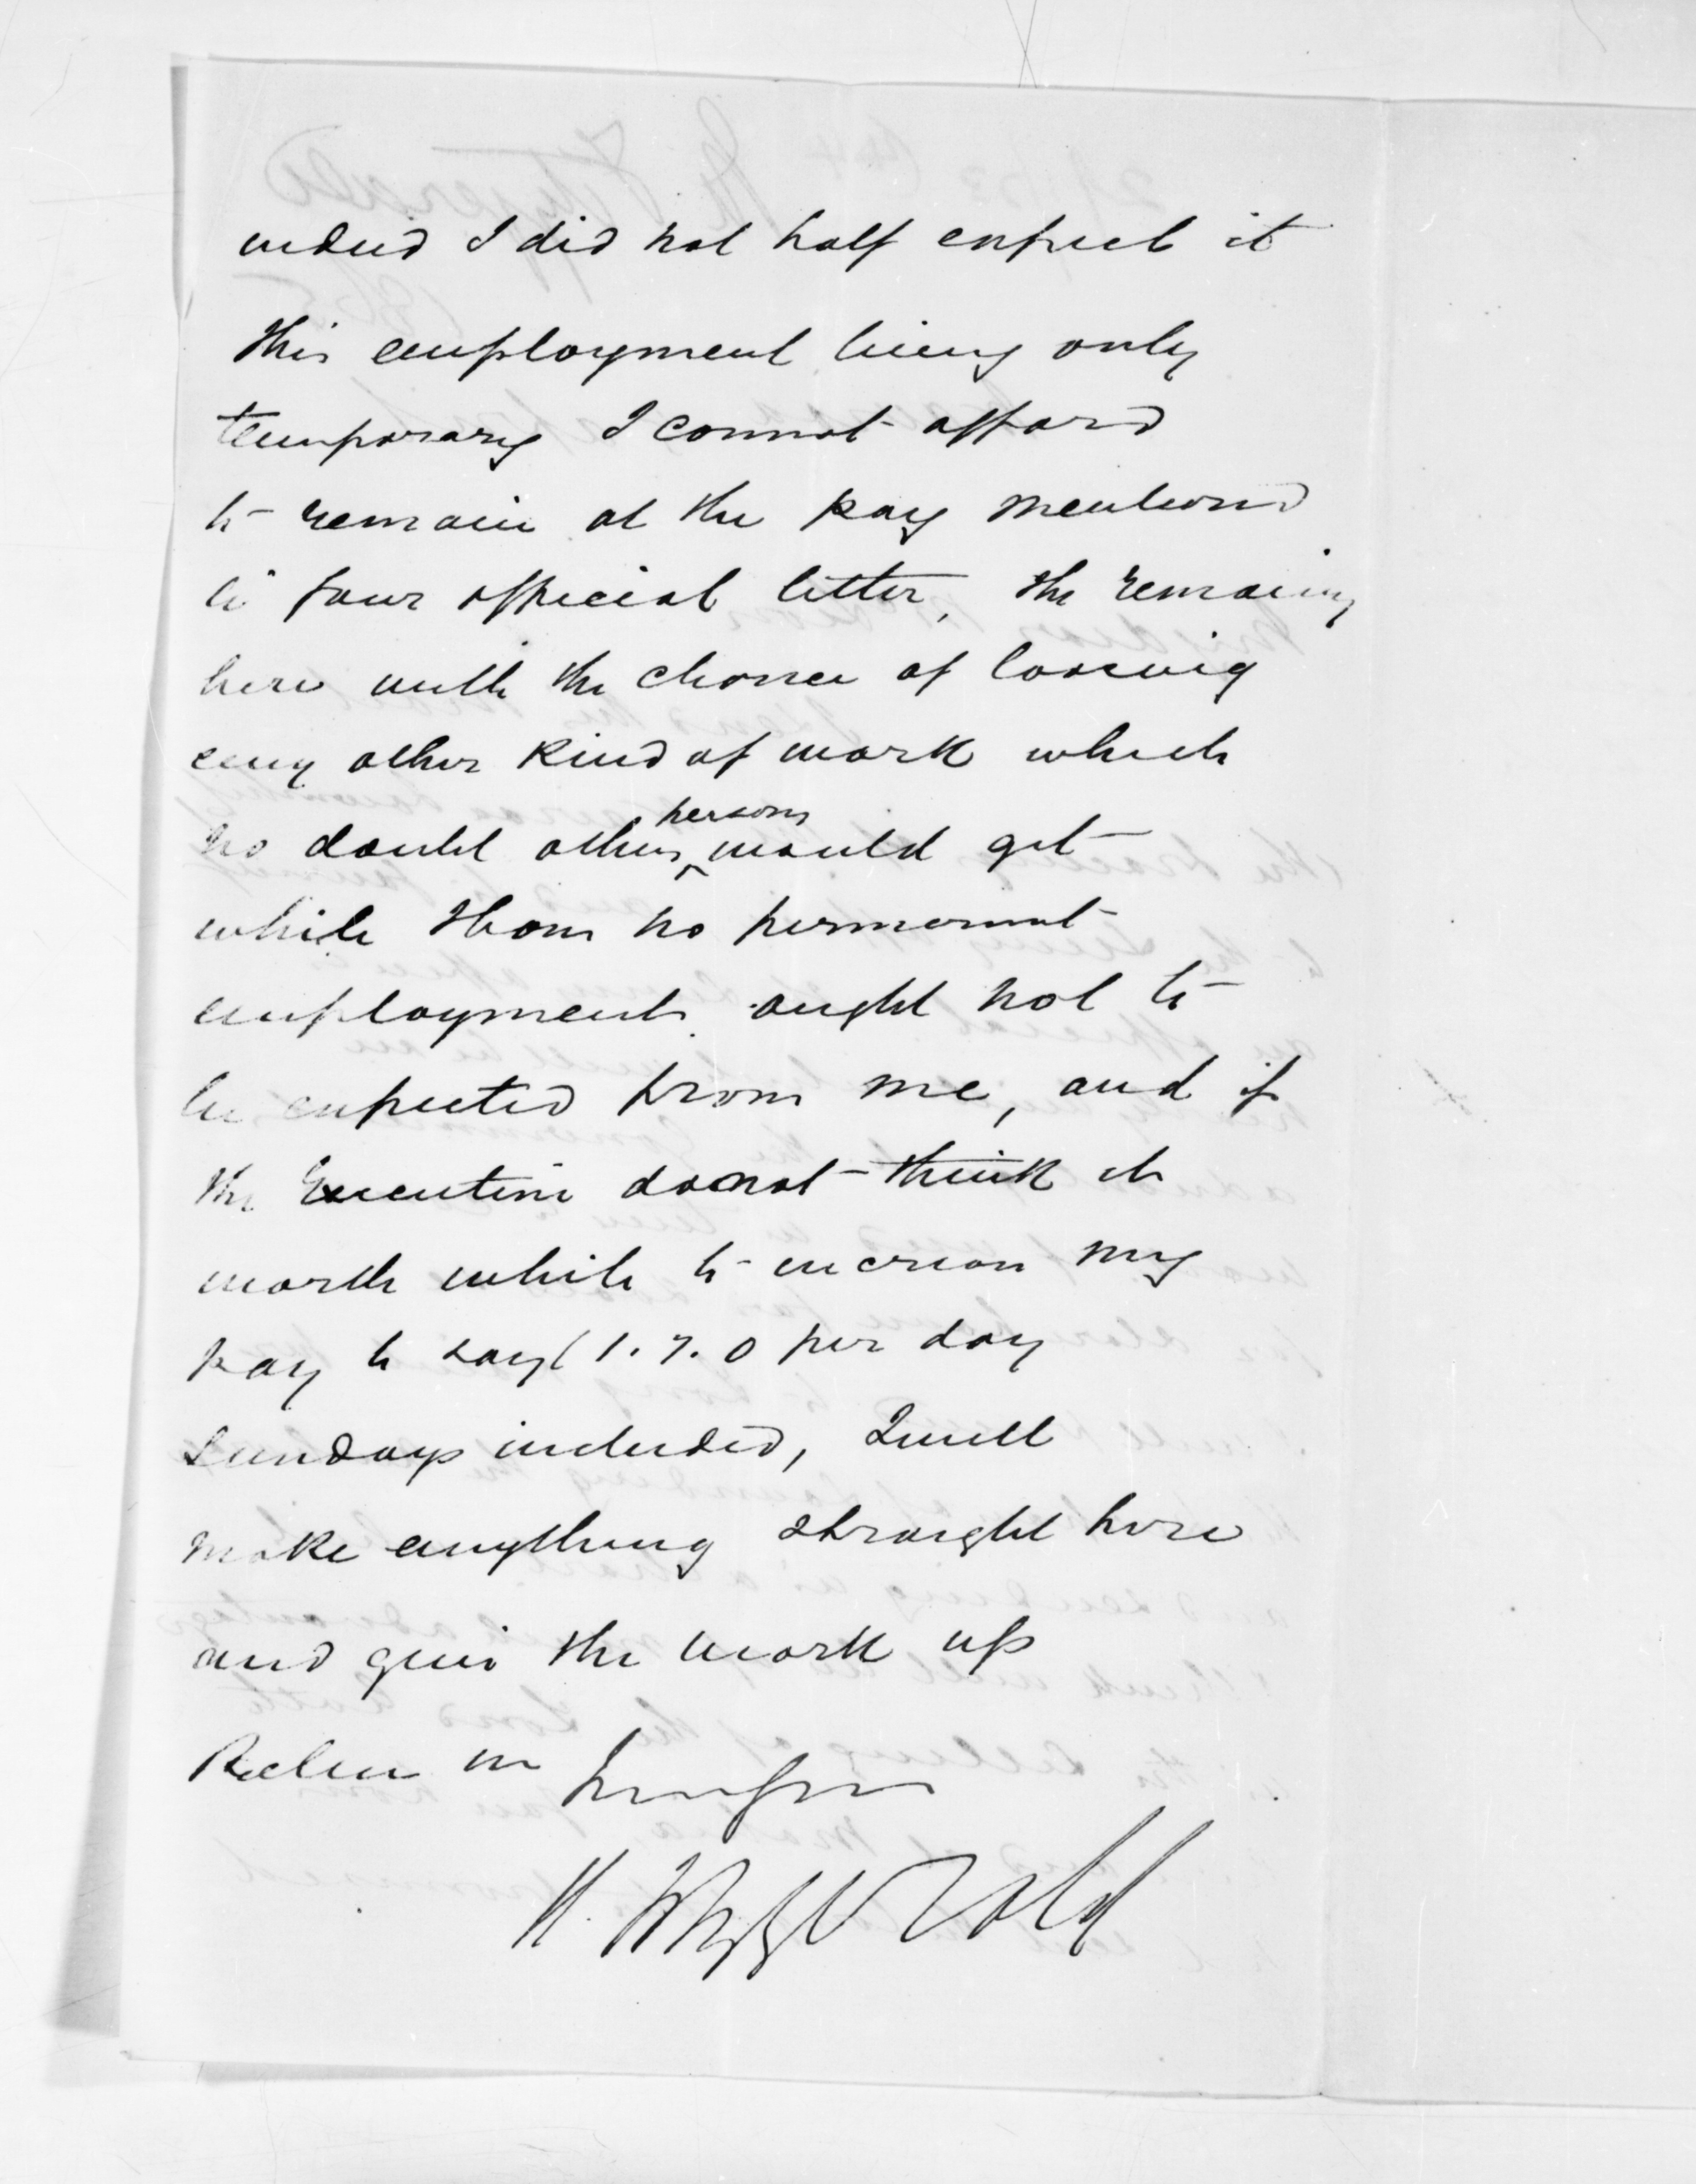 indeed I did not half expect it
This employment being only
temporary I cannot afford
to remain at the pay mentioned
in your official letter, the remaing
here with the chance of loosing
any other kind of work which
no doubt other persons would get
while I have no permanent
employment ought not to
be expected from me, and if
the Executive do not think it
worth while to increase my
pay to say £1.7.0 per day
Sundays included, I will
make anything straight here
and give the work up
Believe me
H. Fitzgerald